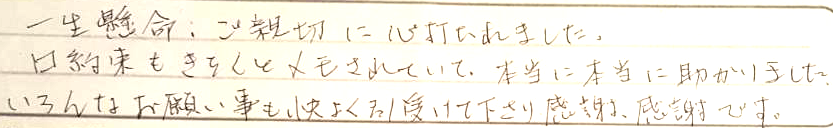 一生懸命；ご親切に心打たれました。
口約束もきちんとメモされていて、本当に本当に助かりました
いろんなお願い事も快よく引受けて下さり感謝、感謝です。